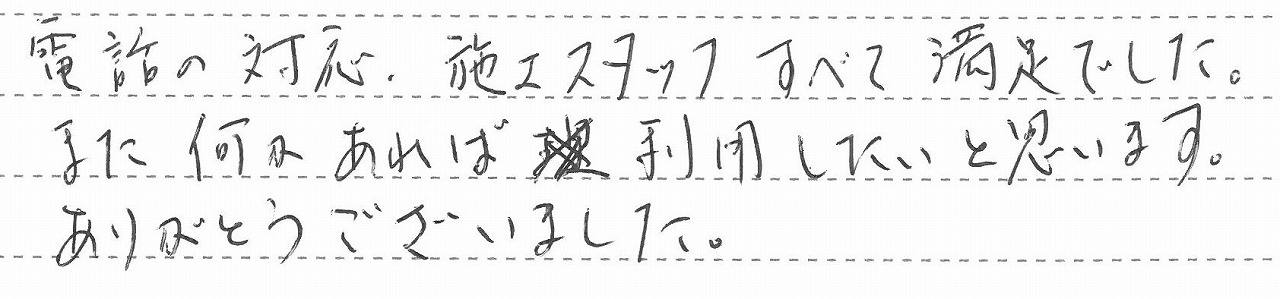 電話の対応、施工スタッフすべて満足でした。
また何かあれば利用したいと思います。
ありがとうございました。